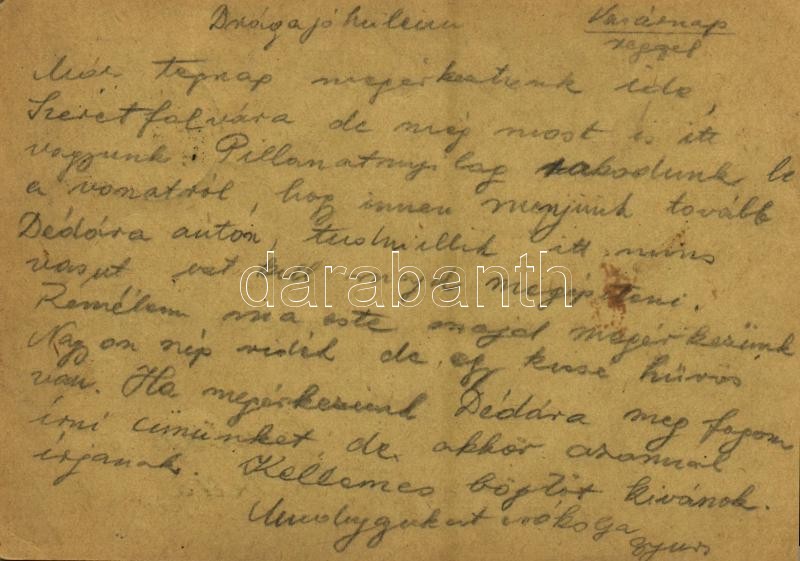 Drága jó híleim Vasárnap
reggel
Már tegnap megérkeztünk ide,
Szeretfalvára de még most is itt
vagyunk. Pillanatnyilag rakodunk le
a vonatról, hog innen menjünk tovább
Dédára autón, tudniillik itt nincs
vasut ezt kell majd megépíteni.
Remélem ma este majd megérkezünk
Nagyon nép vidék de egy kissé hüvös
van. Ha megérkezünk Dédára meg fogom
írni címünket de akkor azonnal
írjanak. Kellemes böjtöt kívánok.
csókolja
Gyuri
darabanth.com